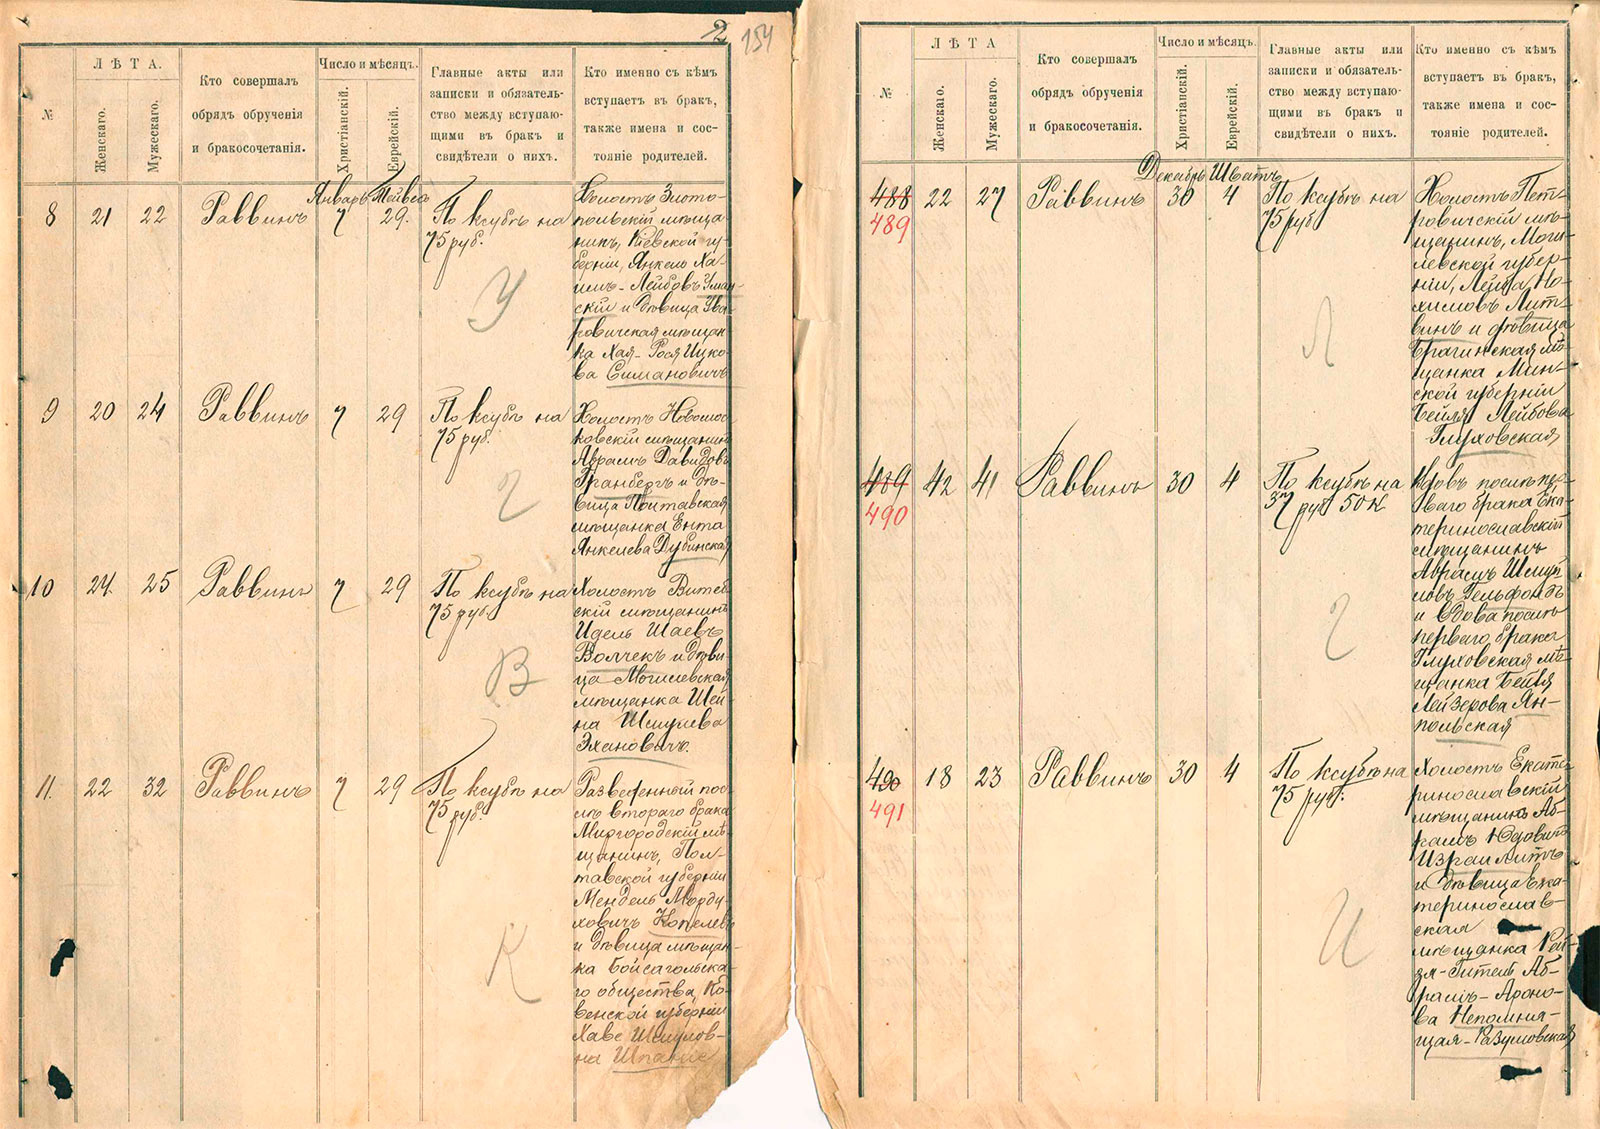 2
154
№
ЛѢТА.
Женскаго.
Мужескаго.
Кто совершалъ
обрядъ обрученія
и бракосочетанія.
Число и мѣсяцъ.
Христіанскій.
Еврейскій.
Главные акты или
записки и обязатель-
ство между вступаю-
щими въ бракъ и
свидѣтели о нихъ.
Кто именно съ кѣмъ
вступаетъ въ бракъ,
также имена и сос-
тояніе родителей.
Январь Тейвесъ
8 21 22 Раввинъ 7 29.
По ксубѣ на
75 руб.
У
Холостъ Злото-
польскій мѣща-
нинъ, Кіевской гу-
берніи, Янкель Ха-
имъ-Лейбовъ Уман-
скій и дѣвица Ува-
ровическая мѣщан
ка Хая-Рося Ицко-
ва Симановичъ
9 20 24 Раввинъ 7 29
По ксубѣ на
75 руб.
Г
Холостъ Новомос-
ковскій мѣщанинъ
Абрамъ Давидовъ
Гранбергъ и дѣ-
вица Полтавская
мѣщанка Ента
Янкелева Дубинская
10 24 25 Раввинъ 7 29
По ксубѣ на
75 руб.
В
Холостъ Витеб-
скій мѣщанинъ
Идель Шаевъ
Волчекъ и дѣви-
ца Могилевская
мѣщанка Шей-
на Шмулева
Эхановичъ.
11. 22 32 Раввинъ 7 29
По ксубѣ на
75 руб.
К
Разведенный пос-
лѣ втораго брака
Миргородскій мѣ-
щанинъ, Пол-
тавской губерніи
Мендель Морду-
ховичъ Копелевъ
и дѣвица мѣщан-
ка Бойсагольска-
го общества, Ко-
венской губерніи
Хаве Шмулов-
на
№
ЛѢТА
Женскаго.
Мужескаго.
Кто совершалъ
обрядъ обрученія
и бракосочетанія.
Число и мѣсяцъ.
Христіанскій.
Еврейскій.
Главные акты или
записки и обязатель-
ство между вступаю-
щими въ бракъ и
свидѣтели о нихъ.
Кто именно съ кѣмъ
вступаетъ въ бракъ,
также имена и сос-
тояніе родителей.
Декабрь Шватъ
488 22 27 Раввинъ 30 4
489
По ксубѣ на
75 руб
Л
Холостъ Пет-
ровичскій мѣ-
щанинъ, Моги-
левской губер-
ніи, Лейба Но-
химовъ Лит-
винъ и дѣвица
Брагинская мѣ-
щанка Мин-
ской губерніи
Бейля Лейбова
Глуховская
489 42 41 Раввинъ 30 4
490
По ксубѣ на
37 руб 50 к
Г
Вдовъ послѣ пер-
ваго брака Ека-
теринославскій
мѣщанинъ
Абрамъ Шмуй-
ловъ Гельфонбъ
и вдова послѣ
перваго брака
Глуховская мѣ-
щанка Бейля
Лейзерова Ян-
польская
490 18 23 Раввинъ 30 4
491
По ксубѣ на
75 руб.
И
Холостъ Екате-
ринославскій
мѣщанинъ Аб-
рамъ Юдовичъ
Израилитъ
и дѣвица Ека-
теринослав-
ская
мѣщанка Рей-
зя-Гитель Аб-
рамъ-Ароно-
ва Непомня-
щая-Разумовская